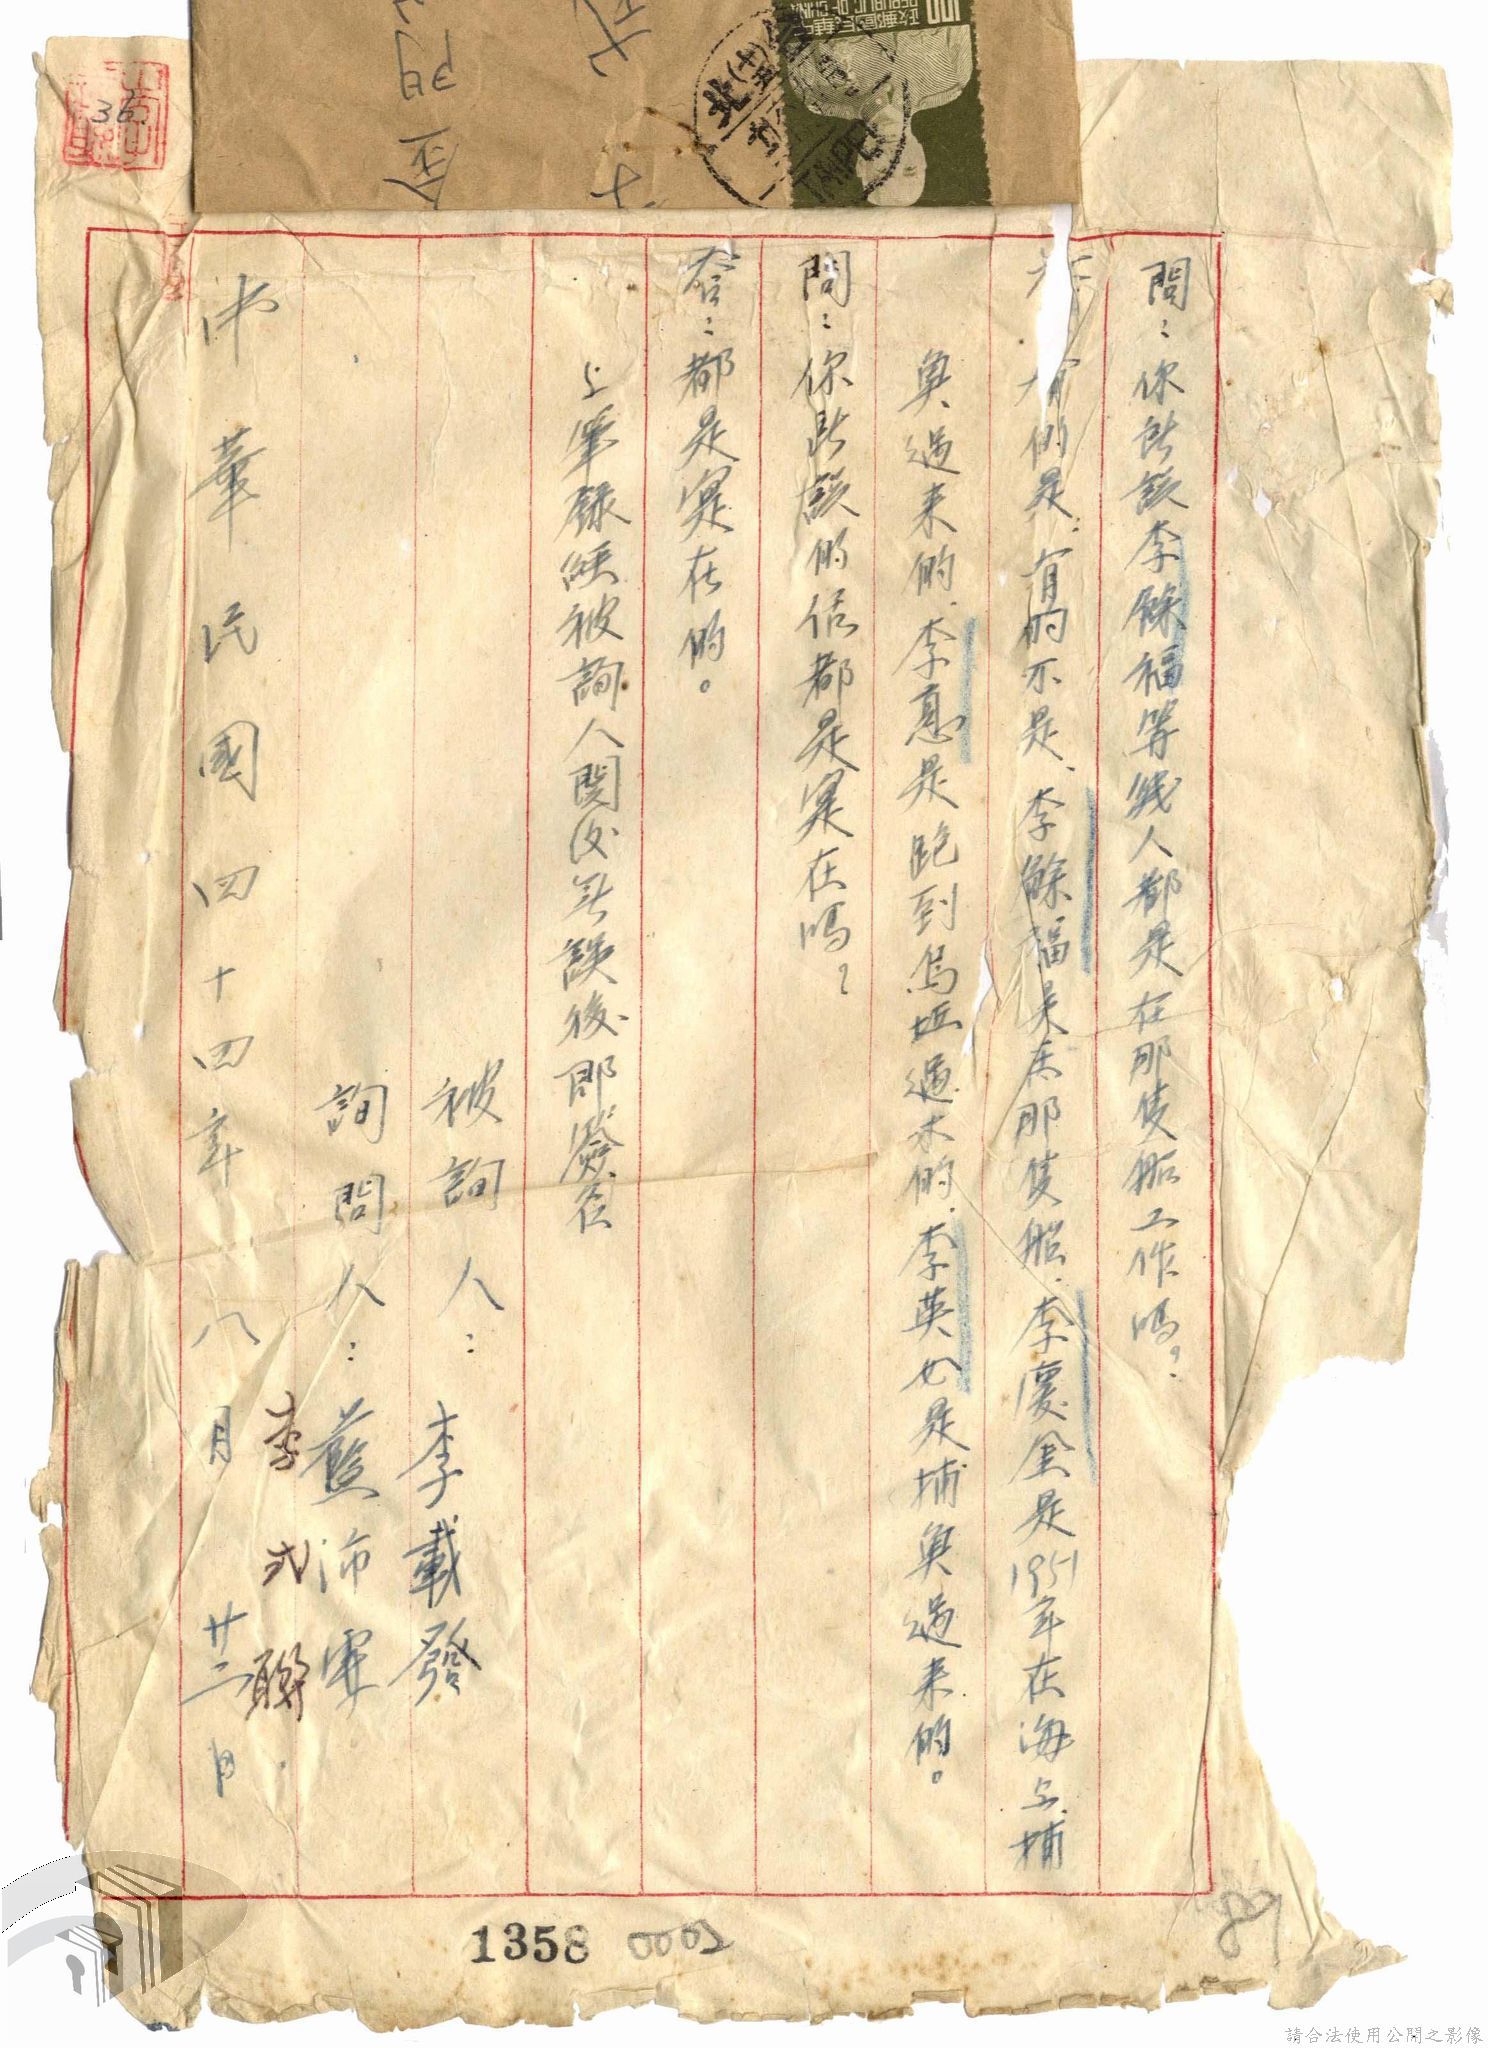 問：你所談李餘福等幾人都是在那隻船工作嗎？
有的是：有的不是、李餘福是在那隻船、李慶全是1951年在海上捕
魚過來的、李意是跑到烏坵過來的、李英也是捕魚過來的。
問：你所談的話都是实在嗎？
答：都是实在的。
上筆錄經被詢人閱後無誤後即簽名
被詢人：李載發
詢問人：藍沛
李式聯
中華民國四十四年八月廿二日
36
100
REPUBLIC OF CHINA
TAIPEI
北
金門
1358
0002
89
請合法使用公開之影像